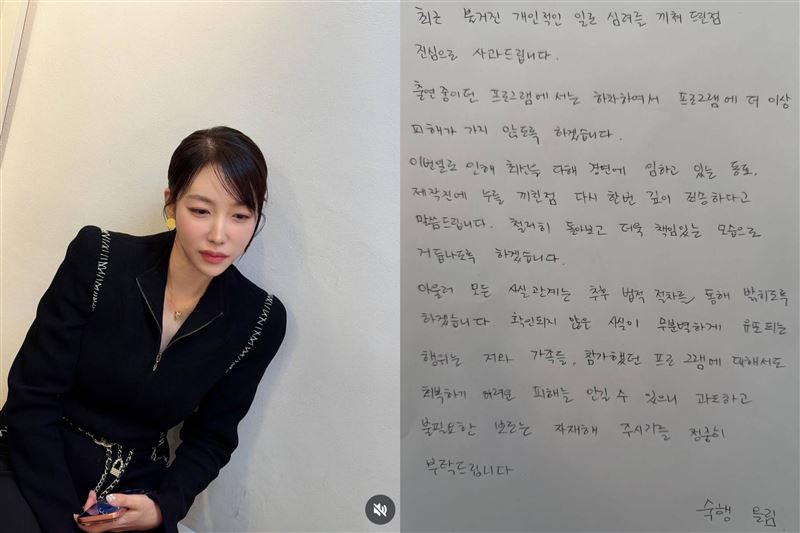 최근 불거진 개인적인 일로 심려를 끼쳐 드린점
진심으로 사과드립니다.
출연 중이던 프로그램에서는 하차하여서 프로그램에 더 이상
피해가 가지 않도록 하겠습니다.
이번일로 인해 최선을 다해 경연에 임하고 있는 동료,
제작진에 누를 끼친점 다시 한번 깊이 죄송하다고
말씀드립니다. 철저히 돌아보고 더욱 책임있는 모습으로
거듭나도록 하겠습니다.
아울러 모든 사실관계는 추후 법적 절차를 통해 밝히도록
하겠습니다. 확인되지 않은 사실이 무분별하게 유포되는
행위는 저와 가족들, 참가했던 프로그램에 대해서도
회복하기 어려운 피해를 안길 수 있으니 과도하고
불필요한 보도는 자재해 주시기를 정중히
부탁드립니다
숙행 올림